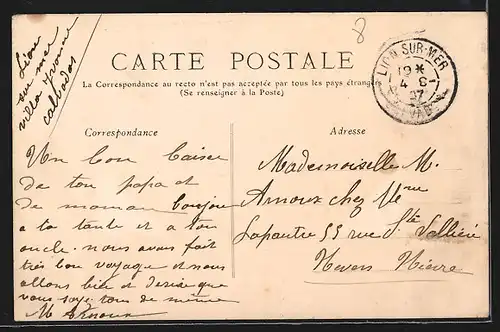 Lion
sur mer
villa Yvonne
calvados
8
CARTE POSTALE
La Correspondance au recto n'est pas acceptée par tous les pays étrangers
(Se renseigner à la Poste)
LION SUR-MER
19 *
4 - 6
07
Correspondance
Un bon baiser
de ton papa et
de maman bonjour
a ta tante et a ton
oncle. nous avons fait
très bon voyage et nous
allons bien et désire que
vous soyé tous de même
M Arnoux
Adresse
Mademoiselle M.
Arnoux chez Me
Lapautre 55 rue Ste
Nevers Nièvre